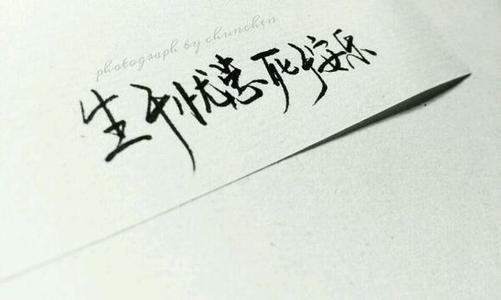 photograph by chunchen
生于忧患死于安乐